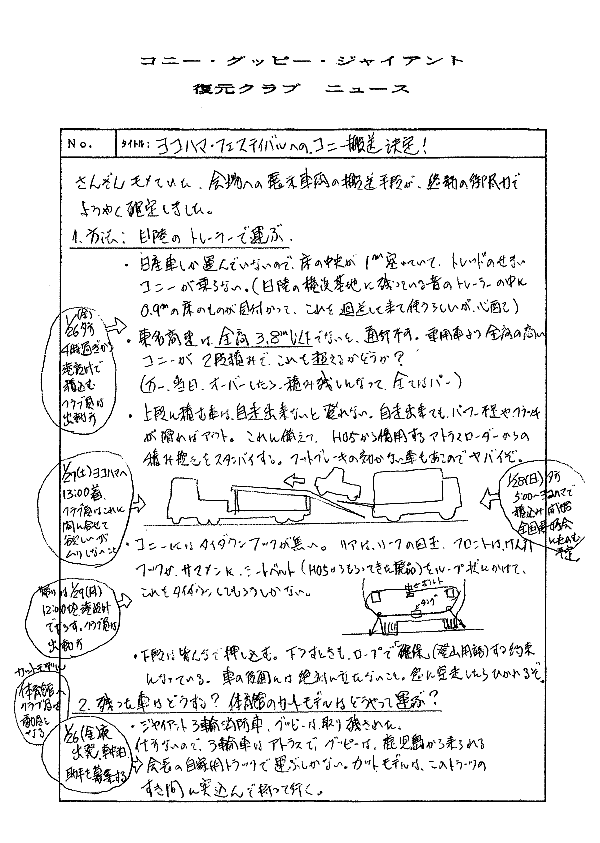 コニー・グッピー・ジャイアント
復元クラブ ニュース
No. タイトル: ヨコハマ・フェスティバルへの、コニー搬送決定!
さんざんモメていた、会場への展示車両の搬送手段が、
ようやく確定しました。
1.方法: 日陸のトレーラーで運ぶ.
・日産車しか運んでいないので、床の中央が1m空いていて、トレッドのせまい
コニーが乗らない。(日陸の横浜基地に残っている昔のトレーラーの中に
0.9mの床のものが見付かって、これを
・東名高速は、全高3.8m以下でないと、通行不可。乗用車より全高の高い
コニーが2段積みで、これを超えるかどうか?
(万一、当日、オーバーしたら、積み残しになって、全てはパー)
・上段に積む車は、自走出来ないと登れない。自走出来ても、パワー不足やクラッチ
が滑ればアウト。これに備えて、H05から借用するアトラスローダーからの
積み換えをスタンバイする。フットブレーキの効かない車もあるのでヤバイぞ。
・コニーにはタイダウンフックが無い。リアは、リーフの目玉、フロントは、けん引
フックか、サスメンに、シートベルト(H05からもらってきた廃品)をループ状にかけて、
これをタイダウンしてもらうしかない。
・下段は皆んなで押し込む。下ろすときも、ロープで確保(登山用語)する約束
になっている。車の後側には絶対に立たないこと。急に暴走したらひかれるぞ。
2.残った車はどうする? 体育館のカットモデルはどうやって運ぶ?
・ジャイアント3輪消防車、グッピーは取り残された。
仕方ないので、3輪車はアトラスで、グッピーは、鹿児島から来られる
会長の自家用トラックで運ぶしかない。カットモデルは、このトラックの
すき間に突込んで持って行く。
1/26(金)夕方
4時過ぎから
積込む
クラブ員は
出動カ
1/27(土)ヨコハマへ
13:00着、
クラブ員はこれに
間に合せて
欲しいが
ムリしないこと
1/28(日)夕方
5:00~
積込み
帰りは1/29(月)
12:00
クラブ員は
出動カ
カットモデル
体育館へ
クラブ員は
1/26(金)夜
出発、
助手を募集する
ボルト